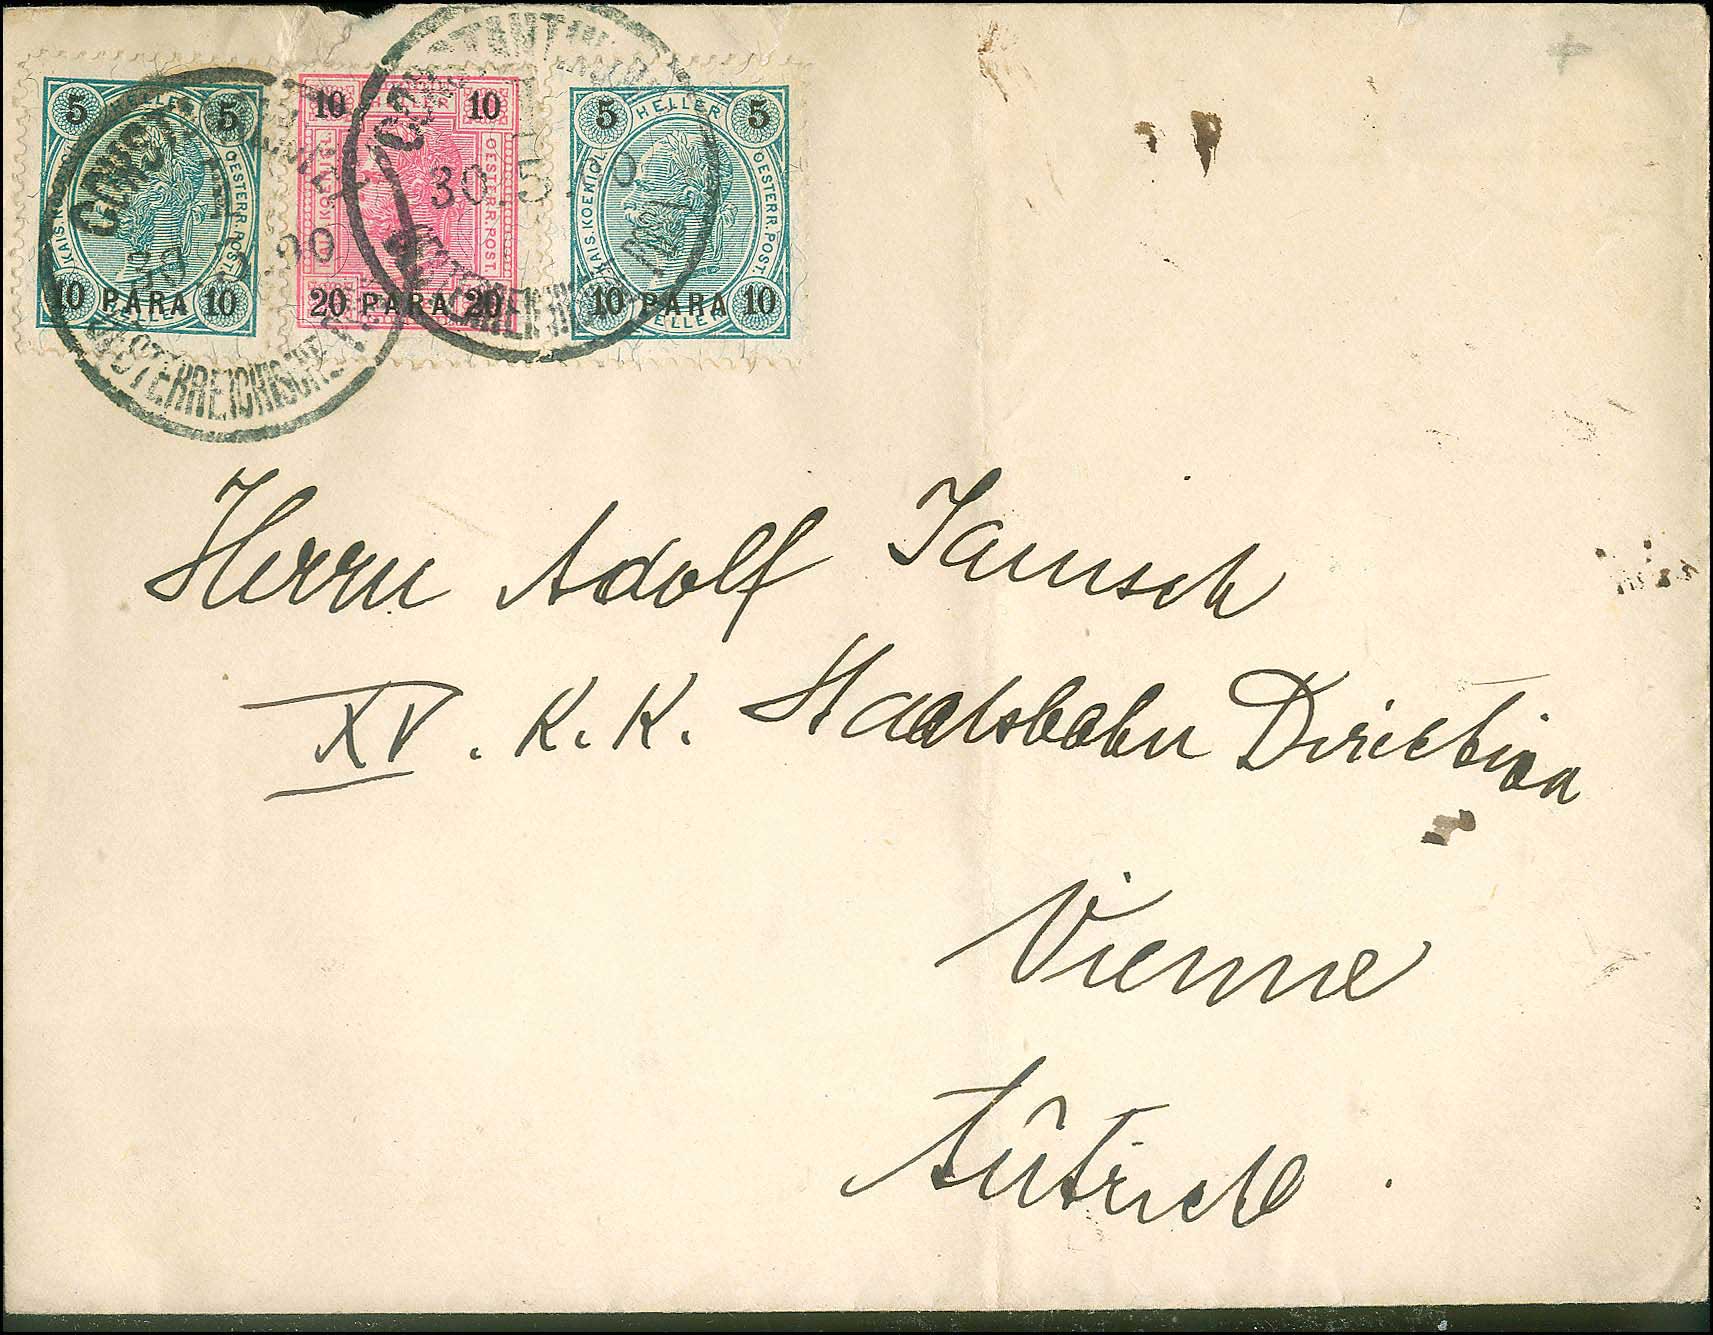 5 HELLER 5
KAIS. KOENIGL. OESTERR. POST.
10 PARA 10
HELLER
10 HELLER 10
OESTERR. POST
20 PARA 20
5 HELLER 5
KAIS. KOENIGL. OESTERR. POST.
10 PARA 10
HELLER
CONST
OESTERREICHISCHE
CONSTANTINOPEL
30. 5.
Herrn Adolf Janisch
XV. K. K. Staatsbahn Direction
Vienne
Aûtriche.